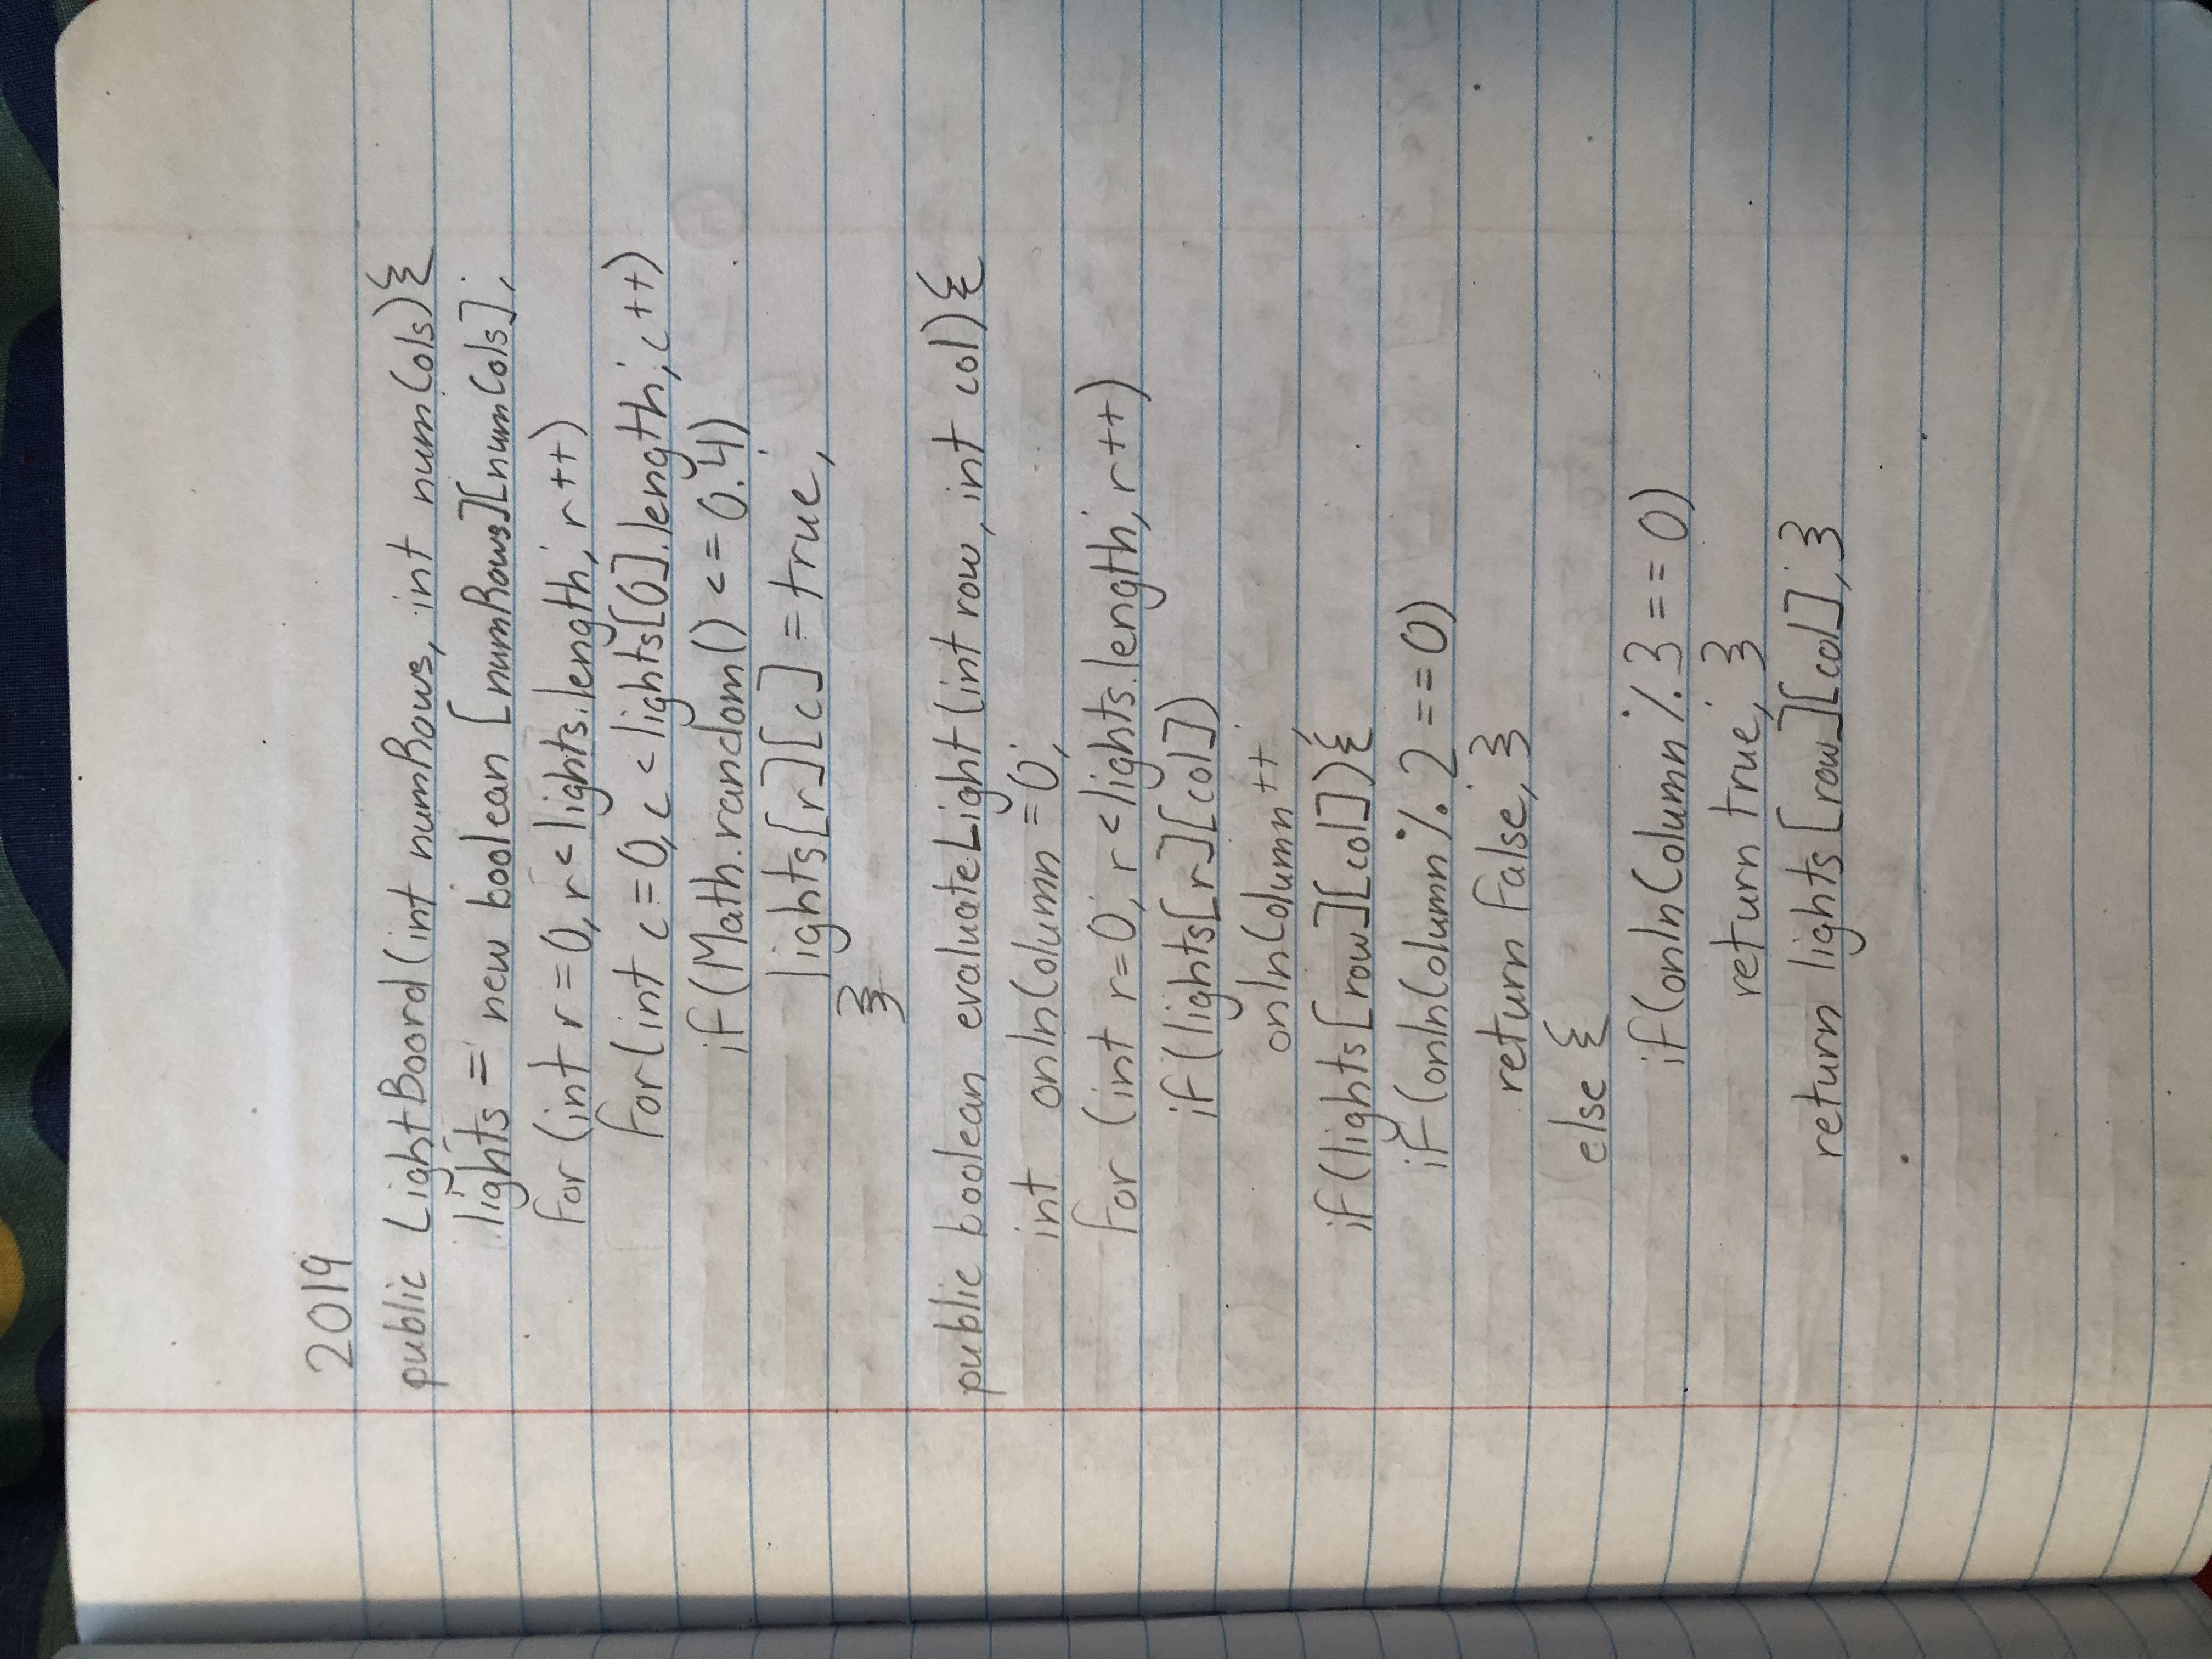 2019
public LightBoard(int numRows, int numCols){
lights = new boolean [numRows][numCols];
for (int r=0, r<lights.length; r++)
for(int c=0, c<lights[0].length; c++)
if(Math.random() <= 0.4)
lights[r][c] = true;
}
public boolean evaluateLight(int row, int col){
int onInColumn = 0;
for (int r=0; r<lights.length; r++)
if(lights[r][col])
onInColumn++;
if(lights[row][col]){
if(onInColumn % 2 == 0)
return false; }
else {
if(onInColumn % 3 == 0)
return true; }
return lights[row][col]; }